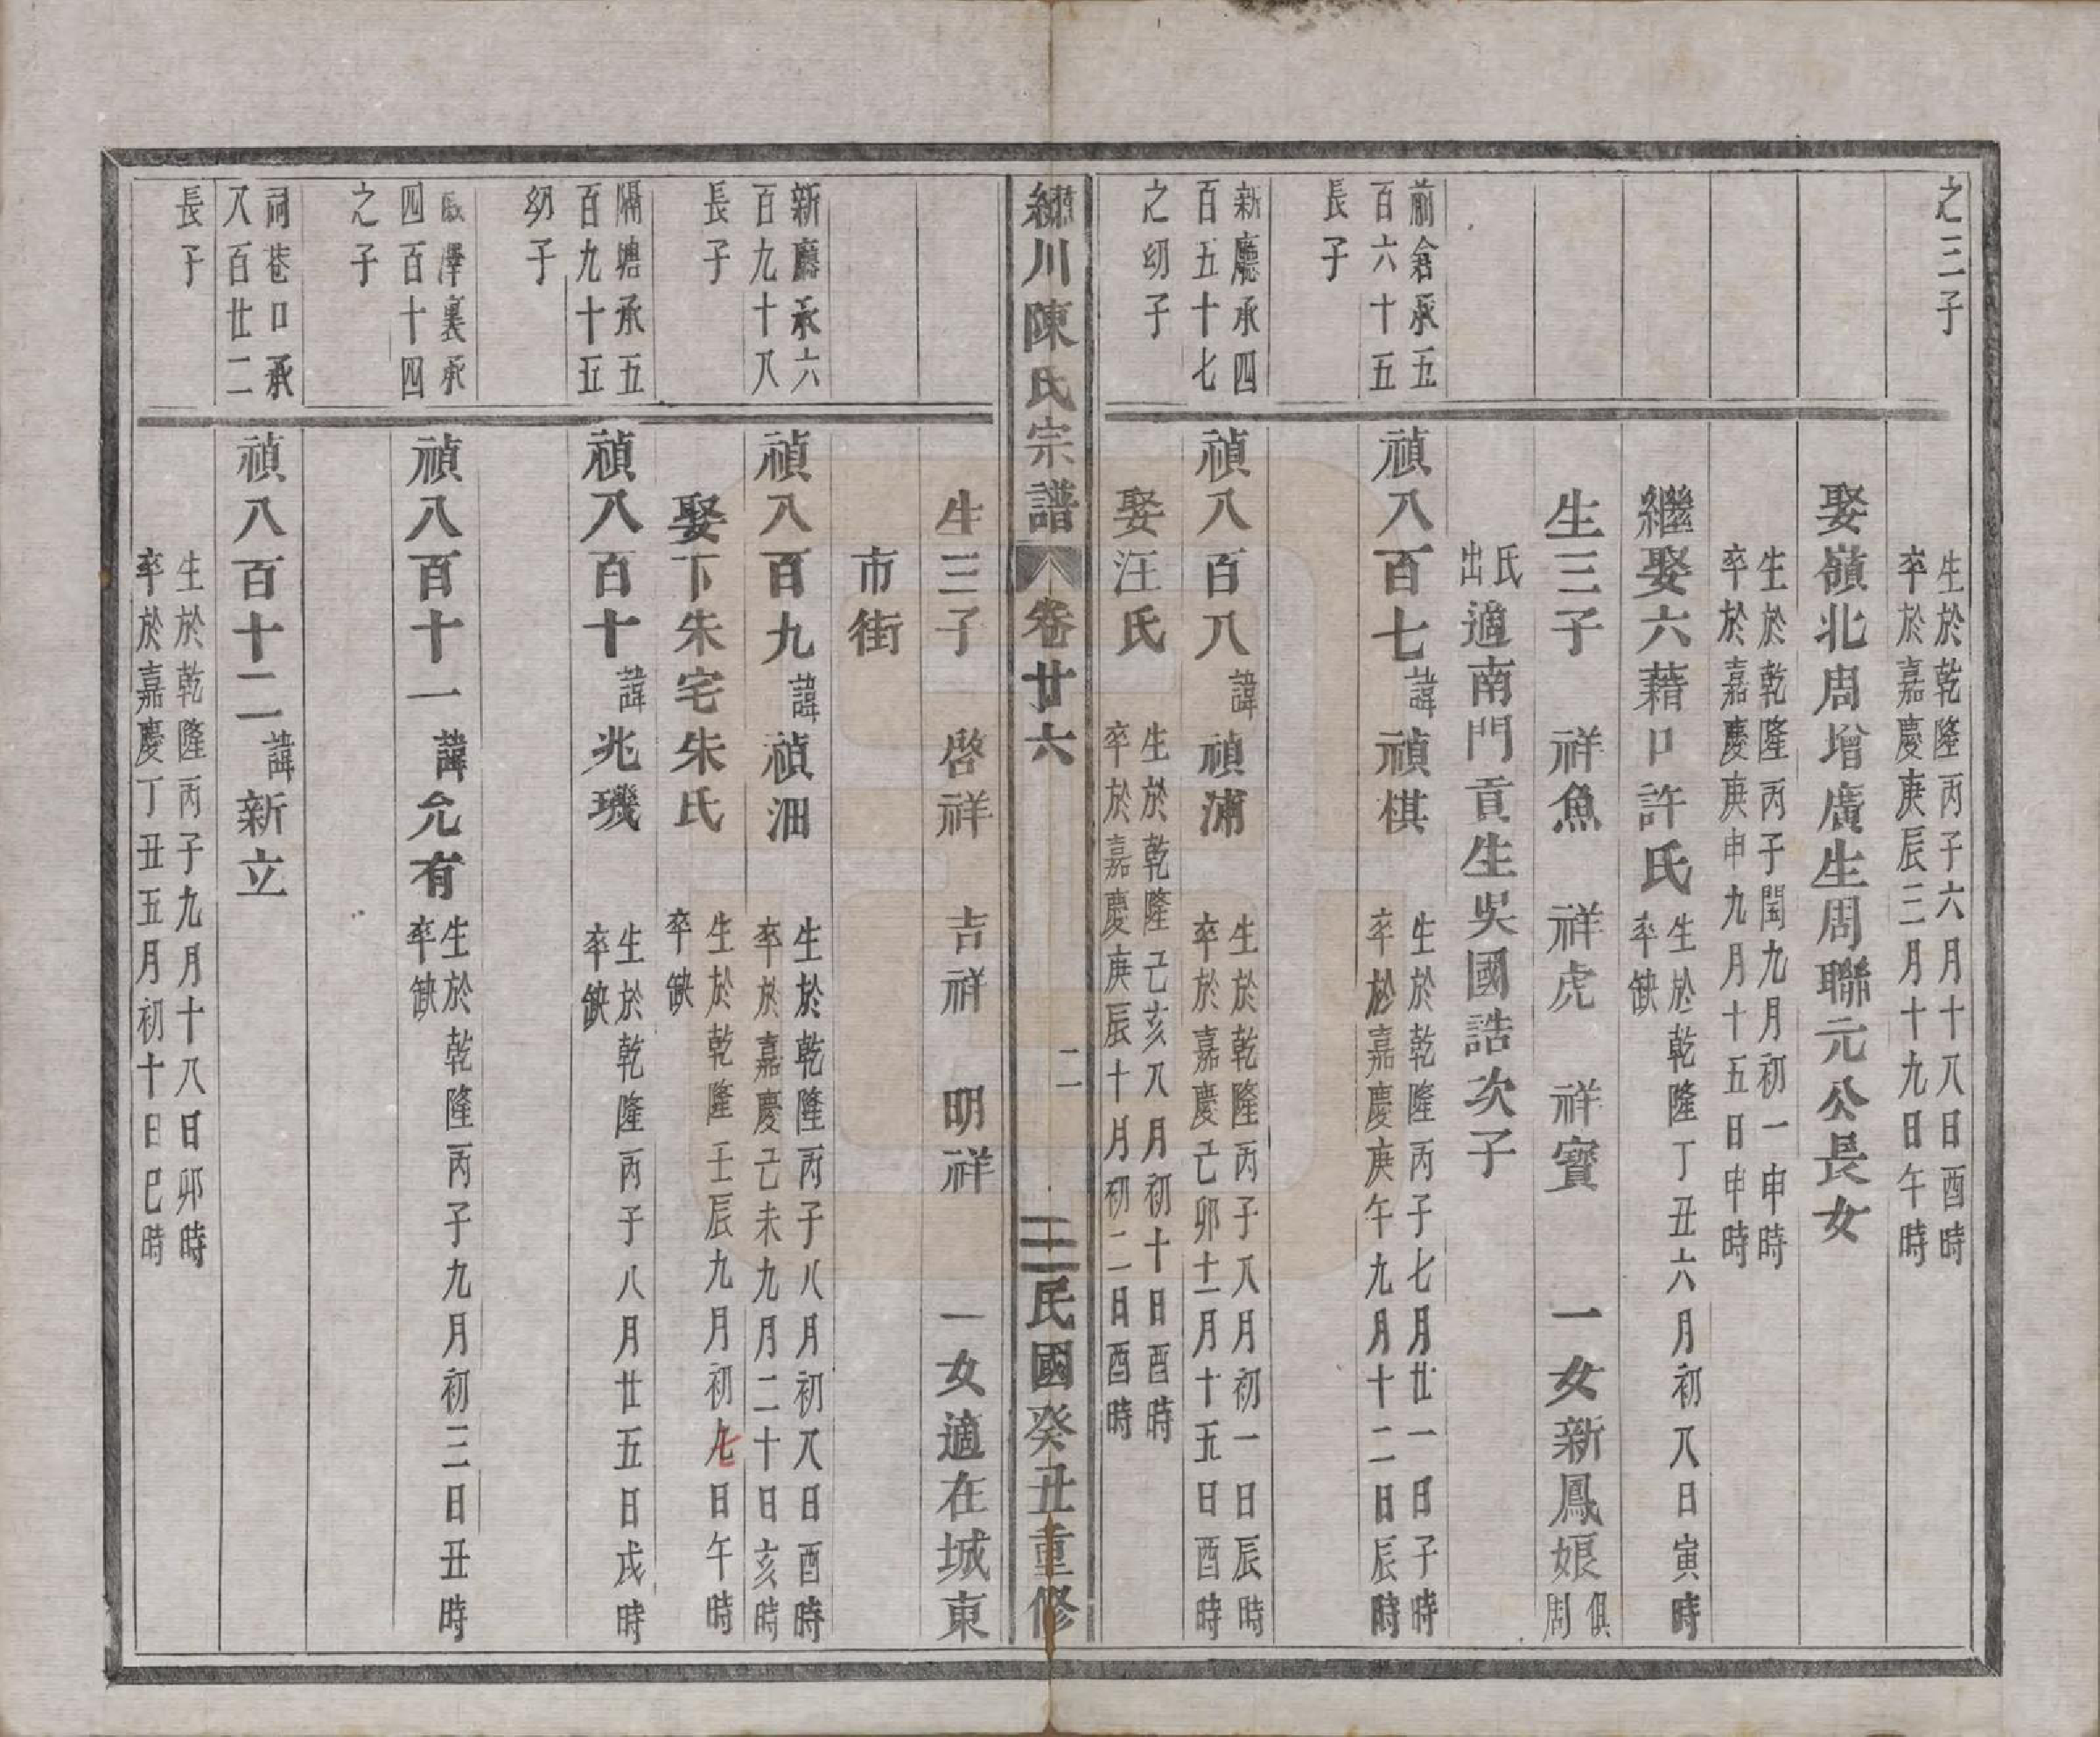 之三子
生於乾隆丙子六月十八日酉時
卒於嘉慶庚辰三月十九日午時
娶嶺北周增廣生周聯元公長女
生於乾隆丙子閏九月初一申時
卒於嘉慶庚申九月十五日申時
繼娶六藉口許氏
生於乾隆丁丑六月初八日寅時
卒缺
生三子 祥魚 祥虎 祥寶 一女新鳳娘俱周
氏出適南門貢生吳國誥次子
前倉承五
百六十五
長子
禎八百七諱禎棋
生於乾隆丙子七月廿一日子時
卒於嘉慶庚午九月十二日辰時
新廳承四
百五十七
之幼子
禎八百八諱禎浦
生於乾隆丙子八月初一日辰時
卒於嘉慶己卯十一月十五日酉時
娶汪氏
生於乾隆己亥八月初十日酉時
卒於嘉慶庚辰十月初二日酉時
繡川陳氏宗譜 卷廿六 二 民國癸丑重修
生三子 啓祥 吉祥 明祥 一女適在城東
市街
新廳承六
百九十八
長子
禎八百九諱禎沺
生於乾隆丙子八月初八日酉時
卒於嘉慶己未九月二十日亥時
娶下朱宅朱氏
生於乾隆壬辰九月初七日午時
卒缺
隔塘承五
百九十五
幼子
禎八百十諱兆璣
生於乾隆丙子八月廿五日戌時
卒缺
澤裏承
四百十四
之子
禎八百十一諱允有
生於乾隆丙子九月初三日丑時
卒缺
祠巷口承
八百廿二
長子
禎八百十二諱新立
生於乾隆丙子九月十八日卯時
卒於嘉慶丁丑五月初十日巳時